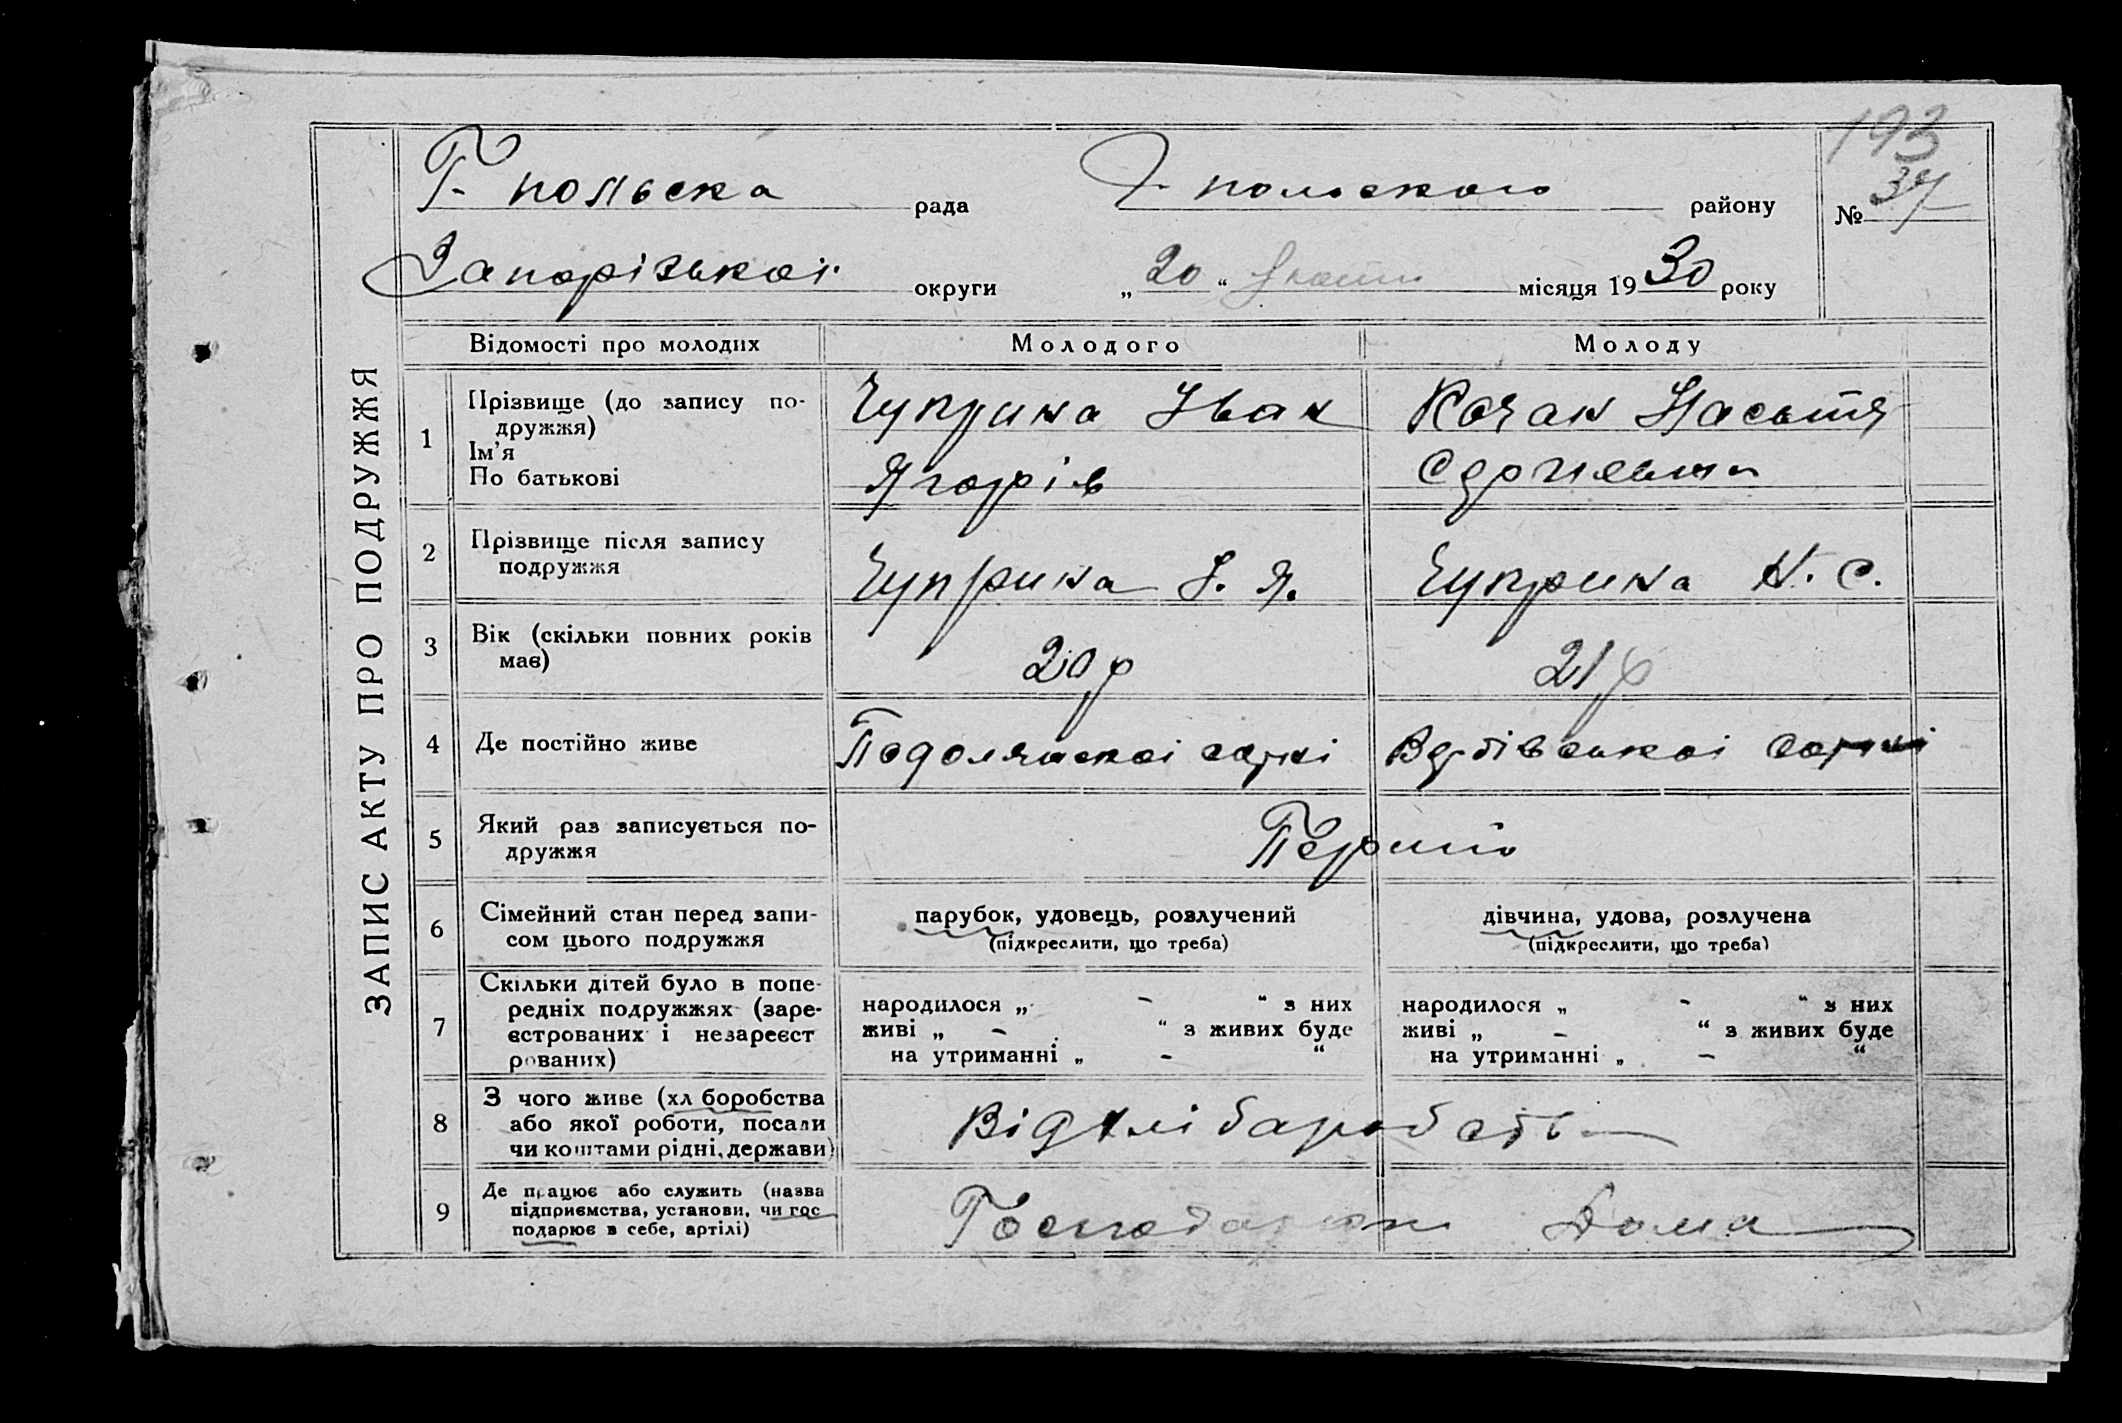 193
Г-польска рада Г-польского району № 37
Запорізькоі округи „ 20 “ місяця 1930 року
ЗАПИС АКТУ ПРО ПОДРУЖЖЯ
Відомості про молодих Молодого Молоду
1 Прізвище (до запису по-
дружжя)
Ім'я
По батькові
Чуприна Іван
Ягорів
Кочан Насьтя
2 Прізвище після запису
подружжя
Чуприна І. Я.
Чуприна Н. С.
3 Вік (скільки повних років
має)
20 р
21 р
4 Де постійно живе
Подоляискоі сотні
Вербівськоі сотні
5 Який раз записується по-
дружжя
Перший
6 Сімейний стан перед запи-
сом цього подружжя
парубок, удовець, розлучений
(підкреслити, що треба)
дівчина, удова, розлучена
(підкреслити, що треба)
7 Скільки дітей було в попе-
редніх подружжях (заре-
єстрованих і незареєст
рованих)
народилося „ - “ з них
живі „ - “ з живих буде
на утриманні „ - “
народилося „ - “ з них
живі „ - “ з живих буде
на утриманні „ - “
8 З чого живе (хл боробства
або якої роботи, посади
чи коштами рідні, держави)
Від хлібаробств
9 Де працює або служить (назва
підприємства, установи, чи гос
подарює в себе, артілі)
Дома